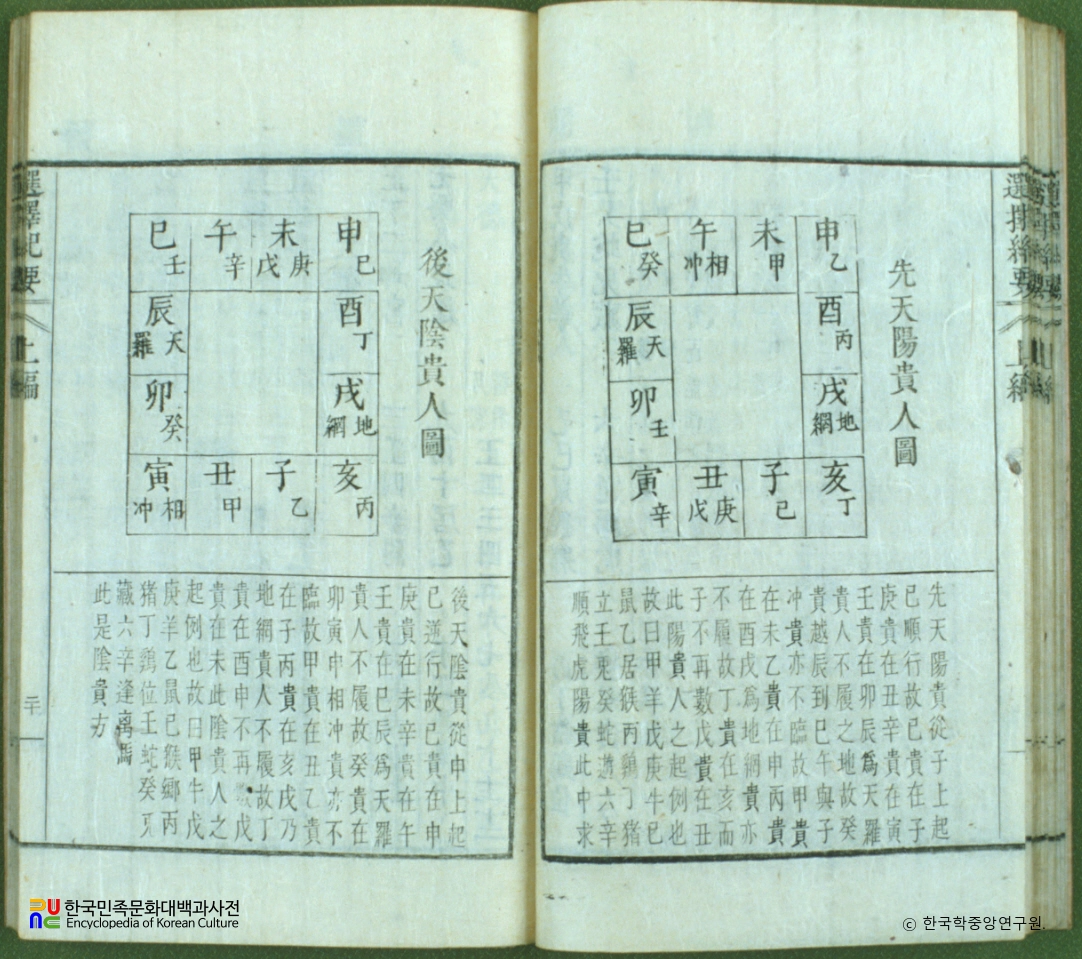 選擇紀要 上編
先天陽貴人圖
申乙
未甲
午相冲
巳癸
酉丙
辰天羅
戌地網
卯壬
亥丁
子己
丑庚戊
寅辛
先天陽貴從子上起
己順行故己貴在子
庚貴在丑辛貴在寅
壬貴在卯辰爲天羅
貴人不履之地故癸
貴越辰到巳午與子
冲貴亦不臨故甲貴
在未乙貴在申丙貴
在酉戌爲地網貴亦
不履故丁貴在亥而
子不再數戊貴在丑
此陽貴人之起例也
故曰甲羊戊庚牛己
鼠乙居猴丙鷄丁猪
立壬兎癸蛇遊六辛
順飛虎陽貴此中求
後天陰貴人圖
申己
未庚戊
午辛
巳壬
酉丁
辰天羅
戌地網
卯癸
亥丙
子乙
丑甲
寅相冲
後天陰貴從申上起
己逆行故己貴在申
庚貴在未辛貴在午
壬貴在巳辰爲天羅
貴人不履故癸貴在
卯寅申相冲貴亦不
臨故甲貴在丑乙貴
在子丙貴在亥戌乃
地網貴人不履故丁
貴在酉申不再數戊
貴在未此陰貴人之
起例也故曰甲牛戊
庚羊乙鼠己猴鄉丙
猪丁鷄位壬蛇癸兎
藏六辛逢离馬
此是陰貴方
選擇紀要 上編
二十
한국민족문화대백과사전
Encyclopedia of Korean Culture
ⓒ 한국학중앙연구원.